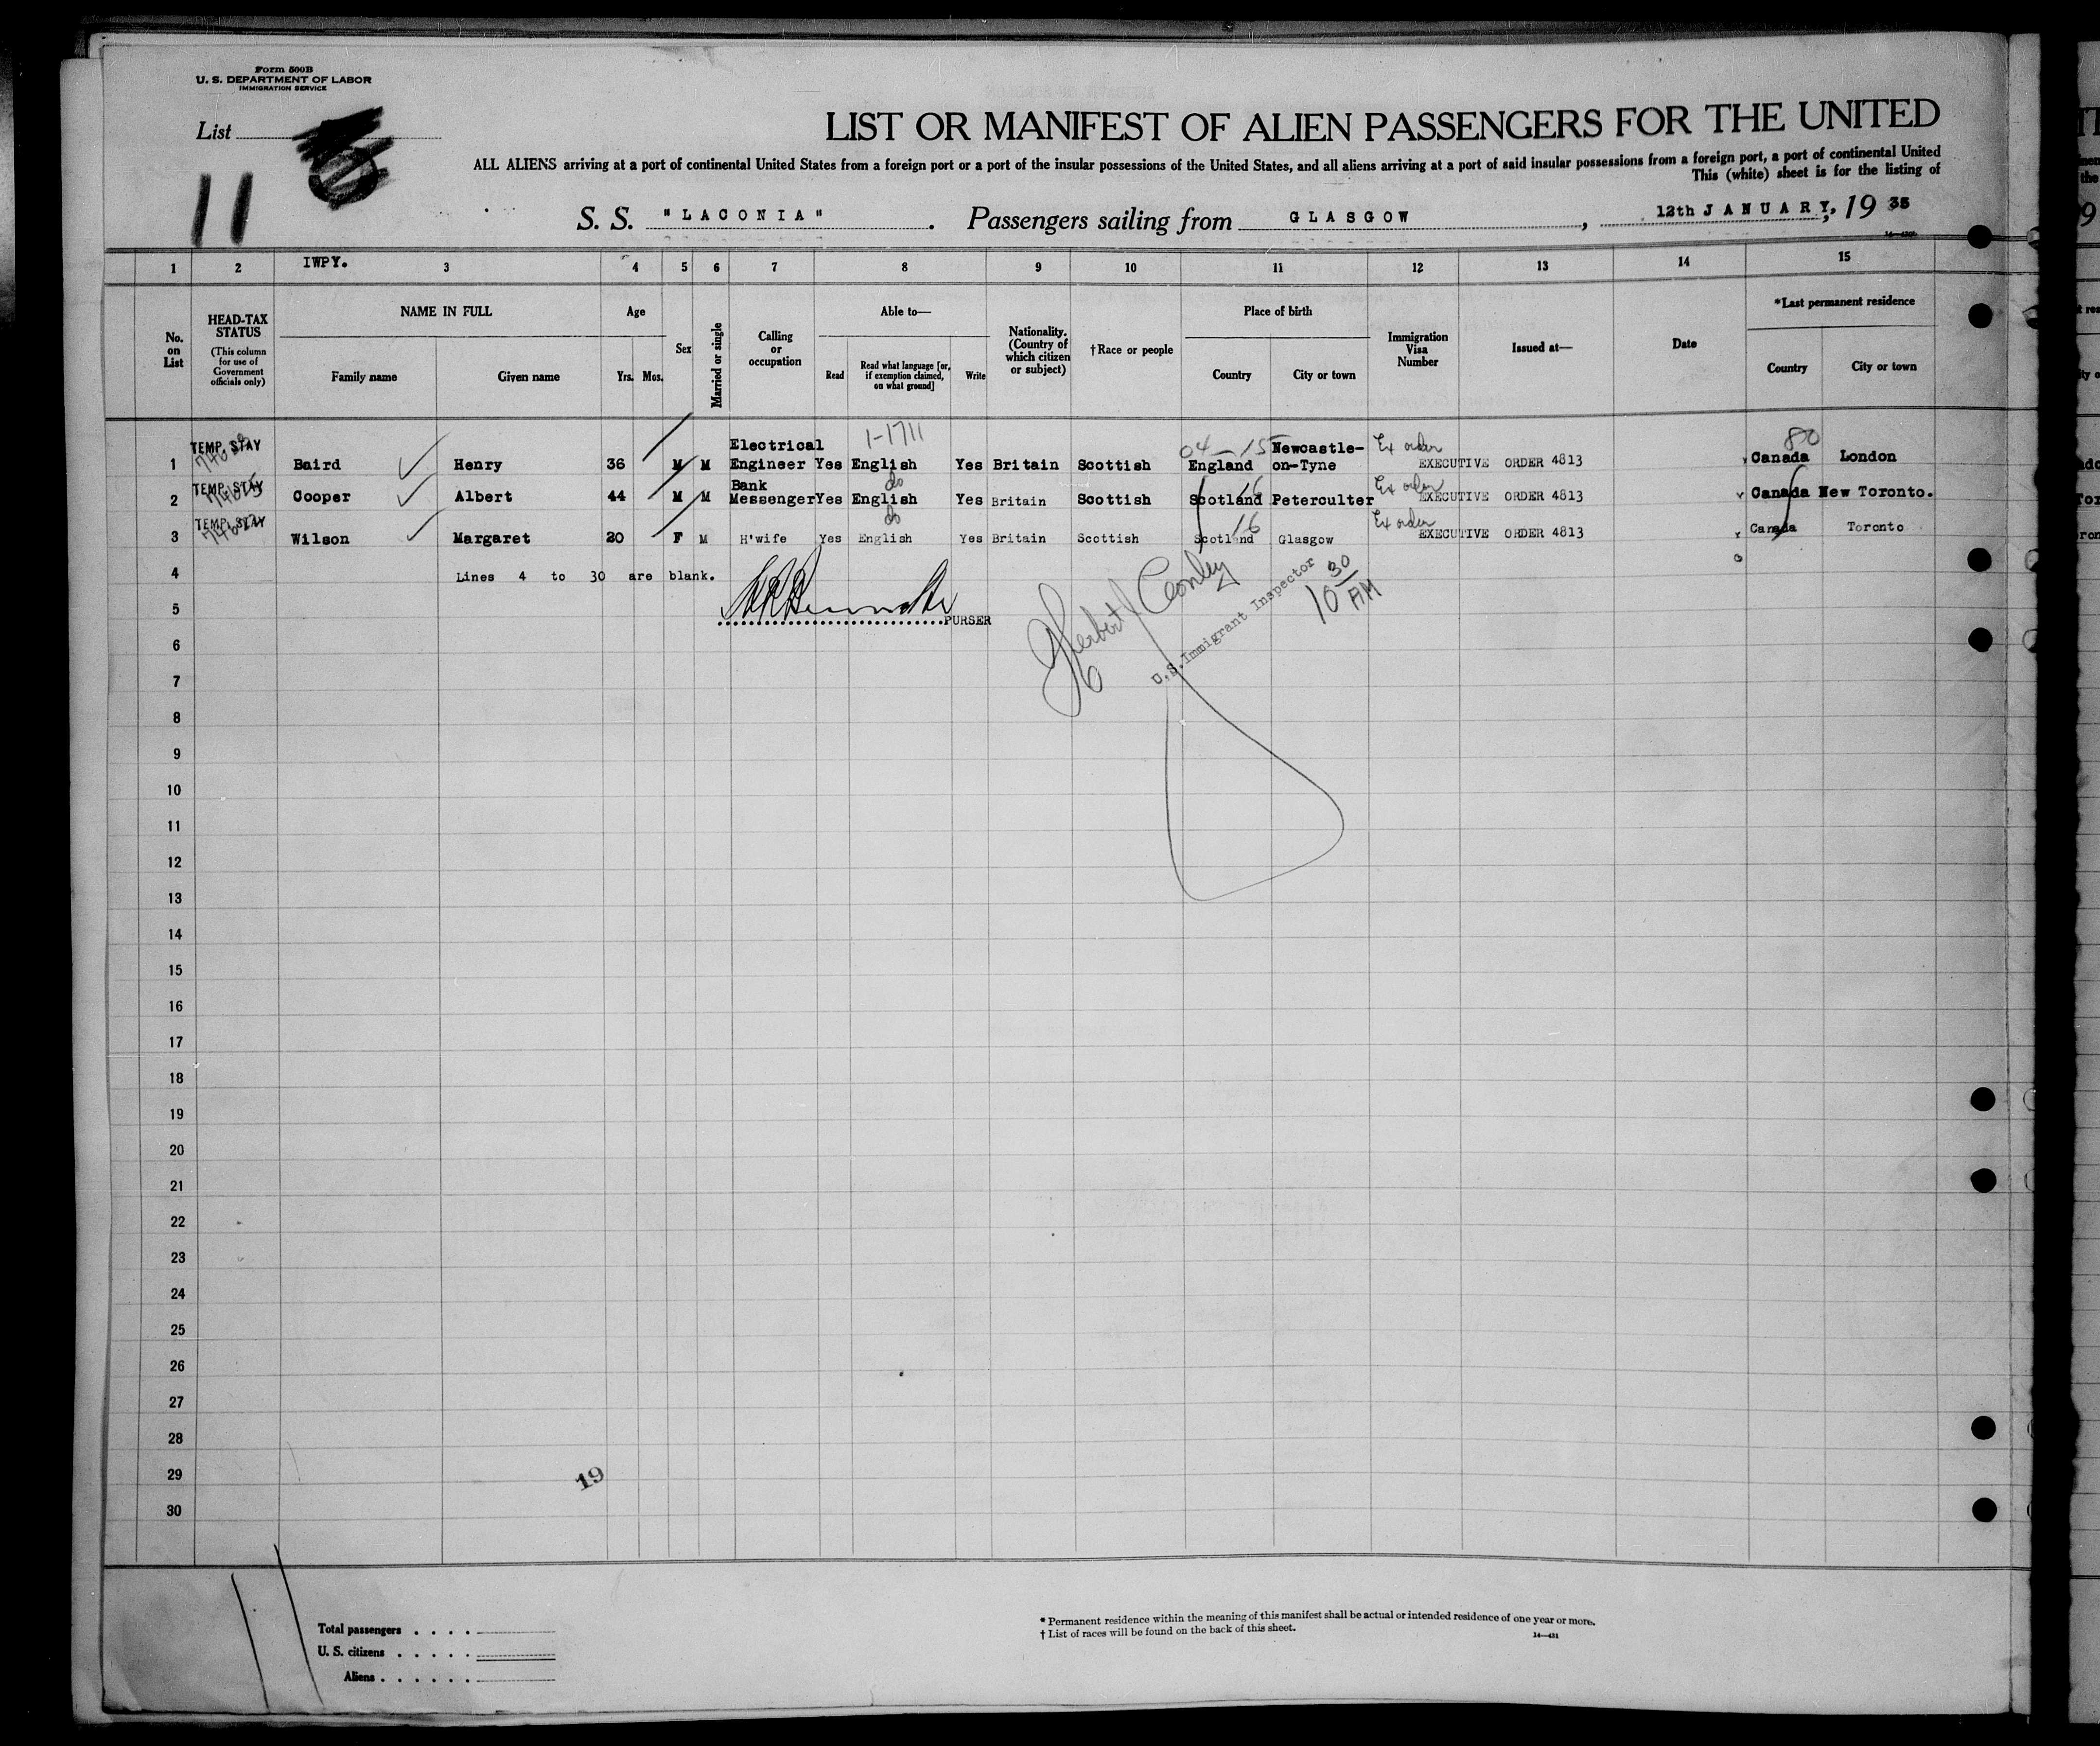 Form 500B
U. S. DEPARTMENT OF LABOR
IMMIGRATION SERVICE
List
11
LIST OR MANIFEST OF ALIEN PASSENGERS FOR THE UNITED
ALL ALIENS arriving at a port of continental United States from a foreign port or a port of the insular possessions of the United States, and all aliens arriving at a port of said insular possessions from a foreign port, a port of continental United
This (white) sheet is for the listing of
S. S. "LACONIA". Passengers sailing from GLASGOW, 12th JANUARY, 19 35
1 2 IWPY. 3 4 5 6 7 8 9 10 11 12 13 14 15
No. on List
HEAD-TAX STATUS (This column for use of Government officials only)
NAME IN FULL
Family name Given name
Age
Yrs. Mos.
Sex
Married or single
Calling or occupation
Able to—
Read Read what language [or, if exemption claimed, on what ground] Write
Nationality. (Country of which citizen or subject)
†Race or people
Place of birth
Country City or town
Immigration Visa Number
Issued at—
Date
*Last permanent residence
Country City or town
1-1711
04-15
80
1 TEMP. STAY Baird Henry 36 M M Electrical Engineer Yes English Yes Britain Scottish England Newcastle-on-Tyne Ex order EXECUTIVE ORDER 4813 Canada London
2 TEMP. STAY Cooper Albert 44 M M Bank Messenger Yes English do Yes Britain Scottish Scotland 16 Peterculter Ex order EXECUTIVE ORDER 4813 Canada New Toronto.
3 TEMP. STAY Wilson Margaret 20 F M H'wife Yes English do Yes Britain Scottish Scotland 16 Glasgow Ex order EXECUTIVE ORDER 4813 Canada Toronto
4 Lines 4 to 30 are blank.
5 PURSER
Herbert J Conley
U.S. Immigrant Inspector
10 30 AM
6
7
8
9
10
11
12
13
14
15
16
17
18
19
20
21
22
23
24
25
26
27
28
29
30
19
Total passengers
U. S. citizens
Aliens
* Permanent residence within the meaning of this manifest shall be actual or intended residence of one year or more.
† List of races will be found on the back of this sheet.
14—431